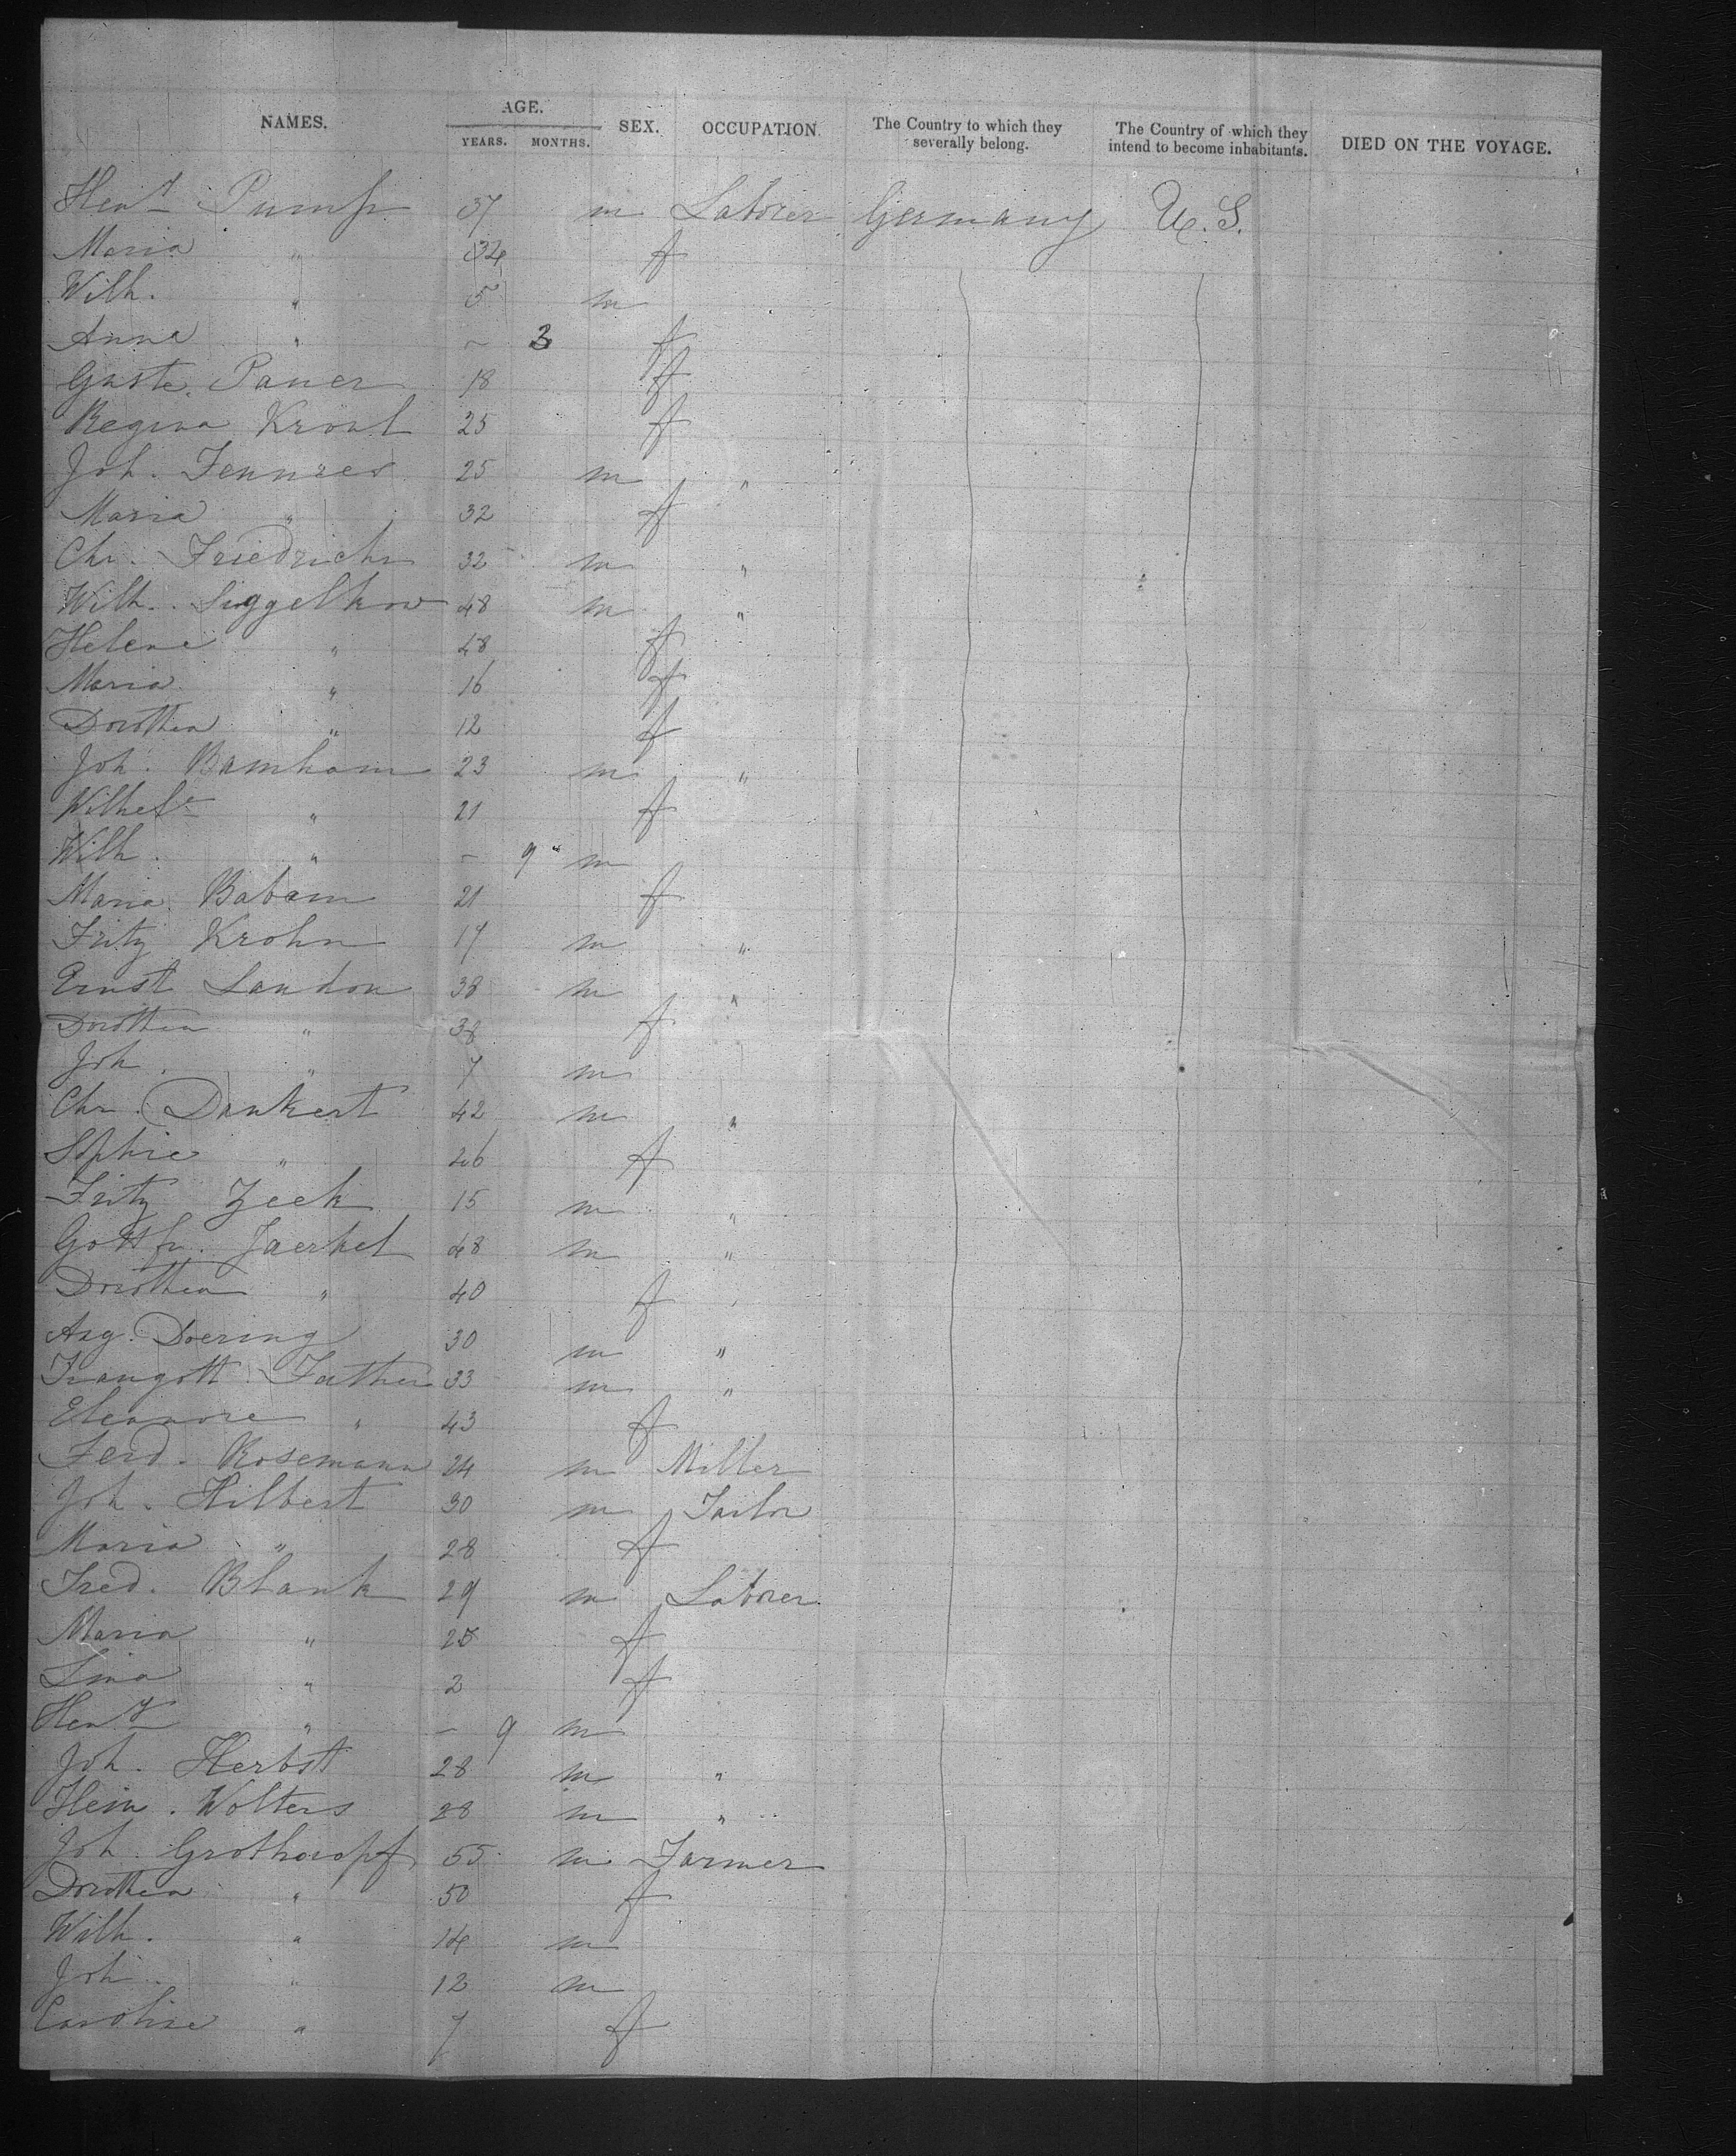 NAMES. AGE. YEARS. MONTHS. SEX. OCCUPATION. The Country to which they severally belong. The Country of which they intend to become inhabitants. DIED ON THE VOYAGE.
Heny Pump 37 m Laborer Germany U.S.
Maria " 34 f
Wilh. " 5 m
Anna " - 3 f
Guste. Pauer 18 f
Regina 25 f
Joh. 25 m "
Maria " 32 f
Chr. Friedrichs 32 m "
Wilh. Suggelkow 48 m "
Helene " 48 f
Maria " 16 f
Dorothea " 12 f
Joh. Bamham 23 m "
Wilhel " 21 f
Wilh. " - 9 m
Maria Babam 21 f
Fritz Krohn 17 m "
Ernst Landon 38 m "
Dorothea " 38 f
Joh. " 7 m
Chr. Dankert 42 m "
Sophie " 46 f
Fritz Zeek 15 m "
Gottfr. Jaerkel 48 m "
Dorothea " 40 f
Aug. Doering 30 m "
Traugott Father 33 m "
Eleanore " 43 f
Ferd. Rosemann 24 m Miller
Joh. Hilbert 30 m Tailor
Maria " 28 f
Fred. Blank 29 m Laborer
Maria " 25 f
Lina " 2 f
Heny " - 9 m
Joh. Herbst 28 m "
Hein. Wolters 28 m "
Joh. 55 m Farmer
Dorothea " 50 f
Wilh. " 14 m
Joh. " 12 m
Caroline " 7 f